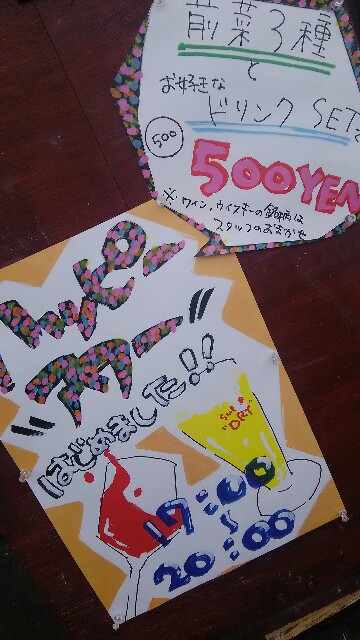 前菜3種
と
お好きな
ドリンク SET
500
500YEN
※ワイン、ウイスキーの銘柄は
スタッフのおまかせ
ハッピー
"アワー"
はじめました!!
SUPER
"DRY"
17:00
〜
20:00